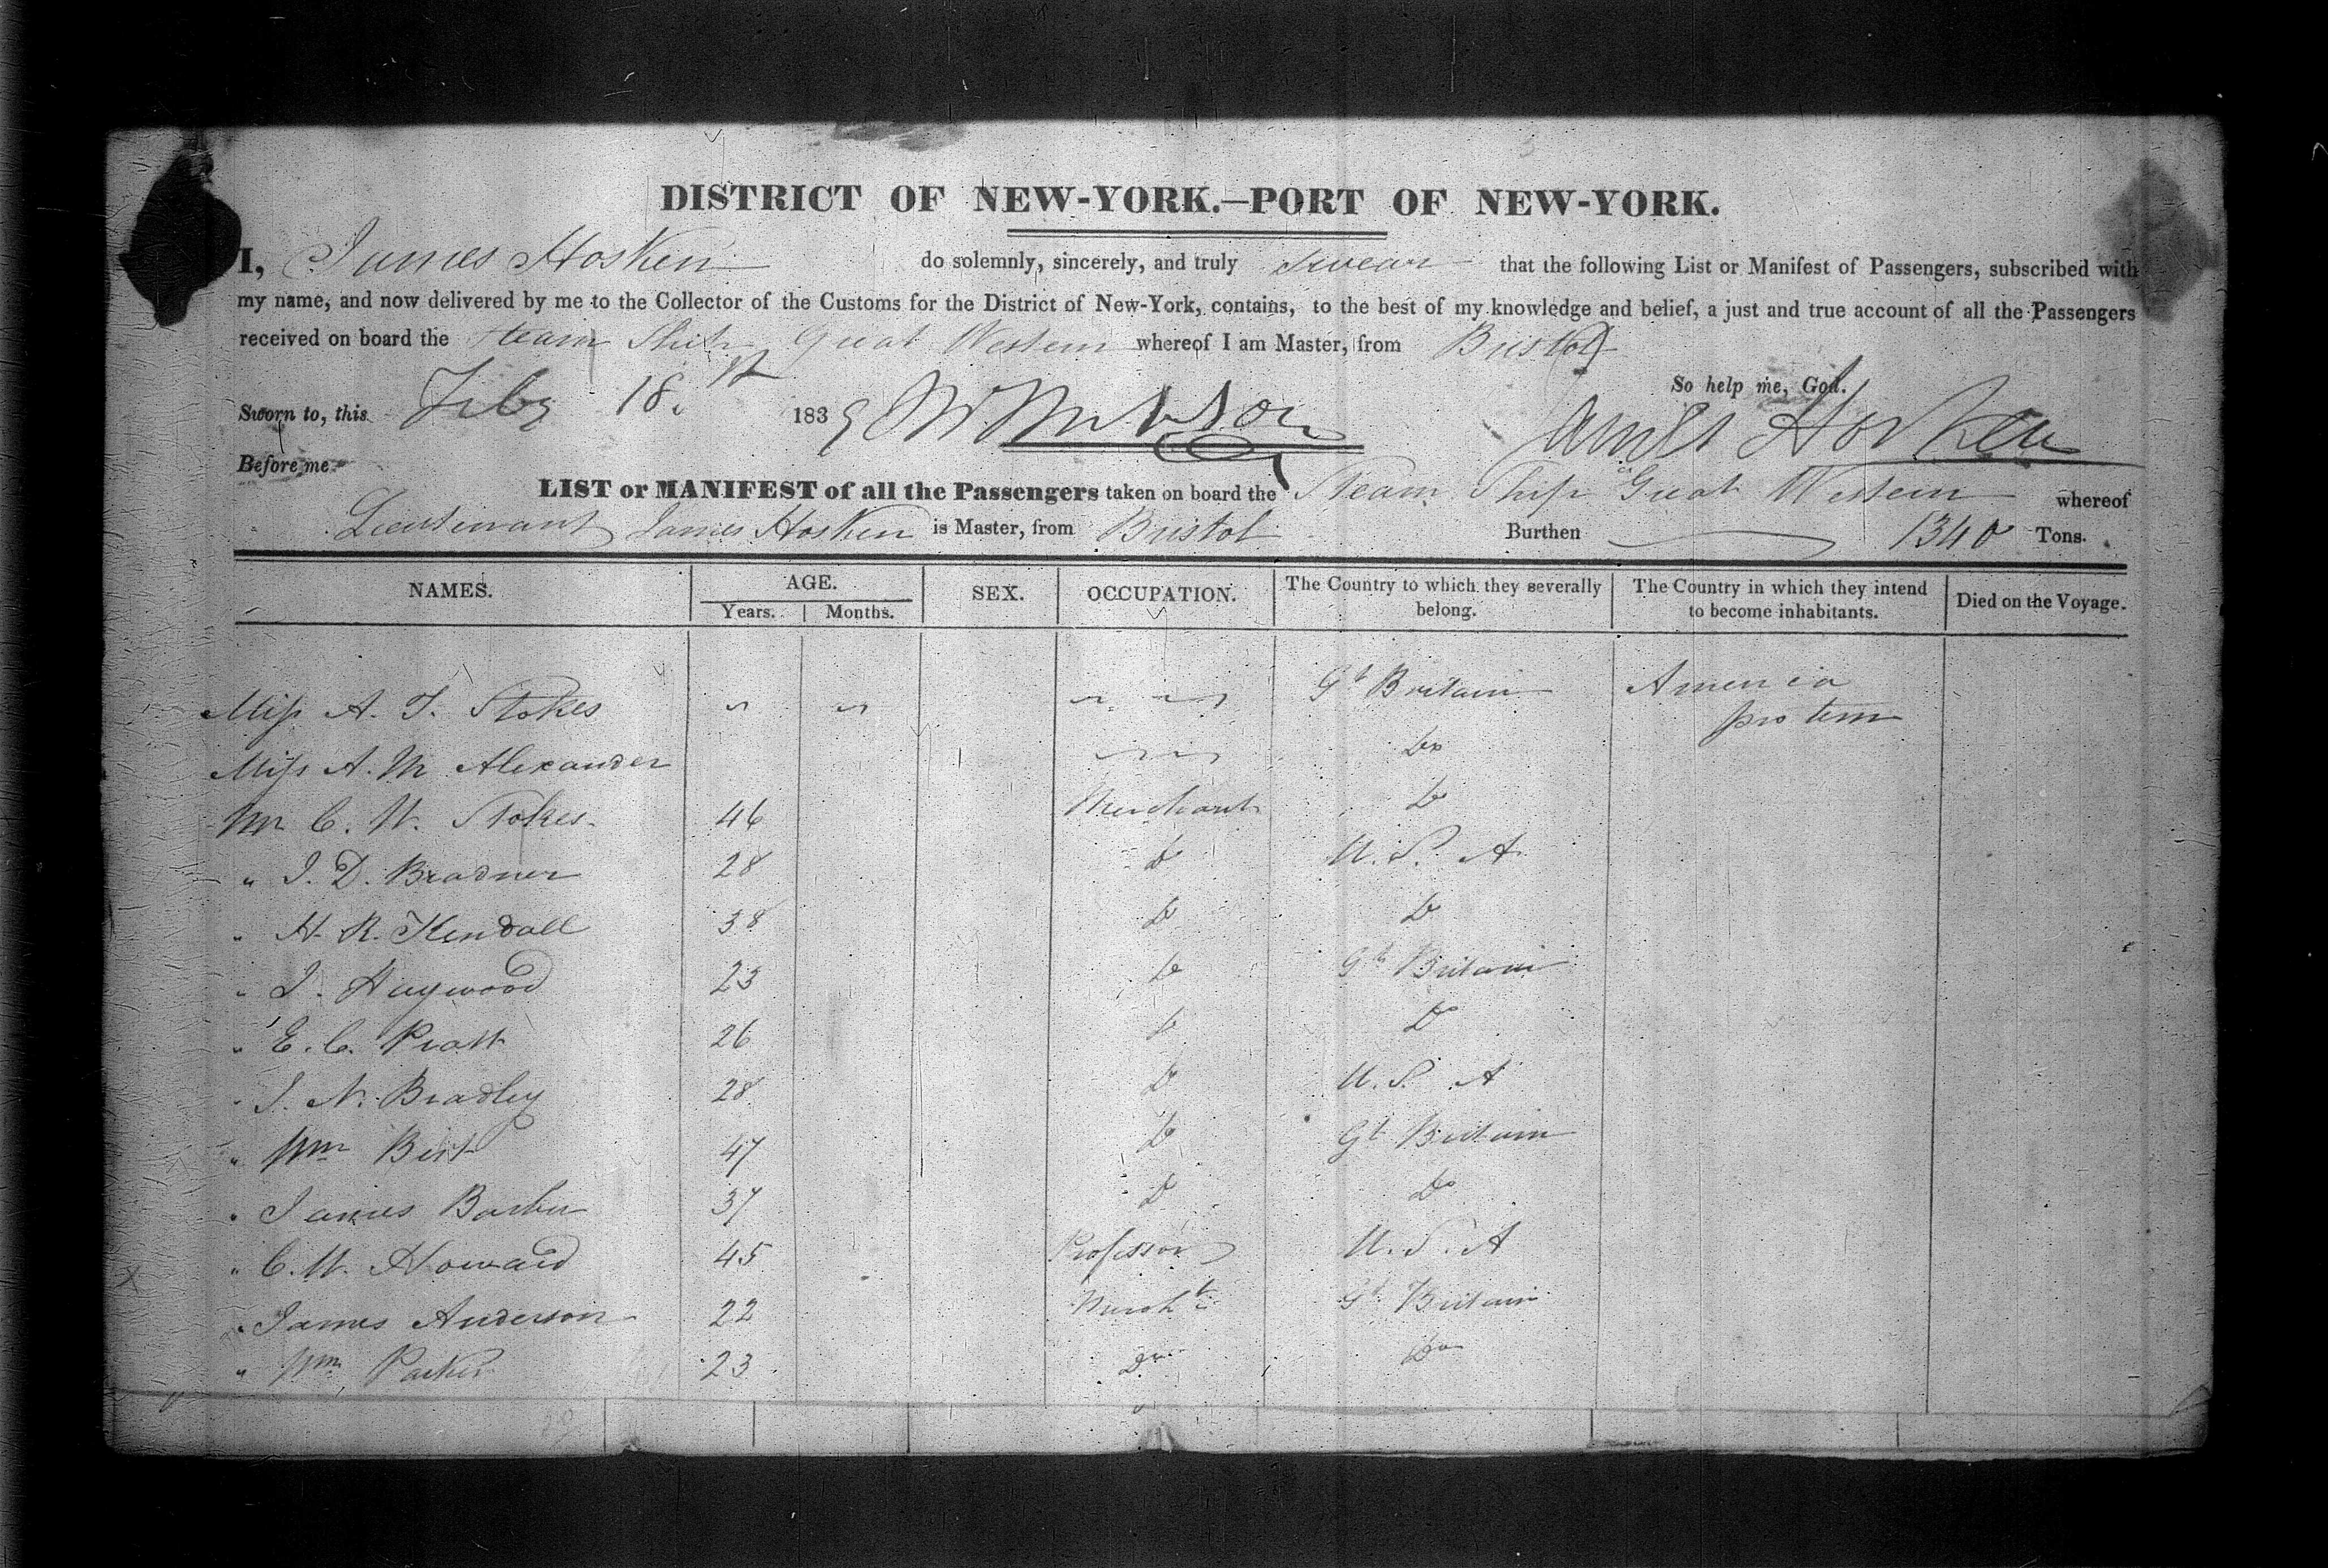 DISTRICT OF NEW-YORK.—PORT OF NEW-YORK.
I, James Hosken do solemnly, sincerely, and truly swear that the following List or Manifest of Passengers, subscribed with
my name, and now delivered by me to the Collector of the Customs for the District of New-York, contains, to the best of my knowledge and belief, a just and true account of all the Passengers
received on board the Steam Ship Great Western whereof I am Master, from Bristol
So help me, God.
Sworn to, this Feby 18. 1839 James Hosken
Before me
LIST or MANIFEST of all the Passengers taken on board the Steam Ship Great Western whereof
Lieutenant James Hosken is Master, from Bristol Burthen 1340 Tons.
NAMES. AGE. SEX. OCCUPATION. The Country to which they severally belong. The Country in which they intend to become inhabitants. Died on the Voyage.
Years. Months.
Miss A. T. Stokes " " " " Gt Britain America
pro tem
Miss A. M Alexander " " Do
Mr C. W. Stokes 46 Merchant Do
" J. D. Bradner 28 Do U. S. A
" H. R. Kendall 38 Do Do
" J. Haywood 23 Do Gt Britain
" E. C. Pratt 26 Do Do
" J. N. Bradley 28 Do U. S. A
" Wm Birt 47 Do Gt Britain
" James Barber 37 Do Do
" C. W. Howard 45 Professor U. S. A
" James Anderson 22 Mercht Gt Britain
" Wm Parker 23 Do Do